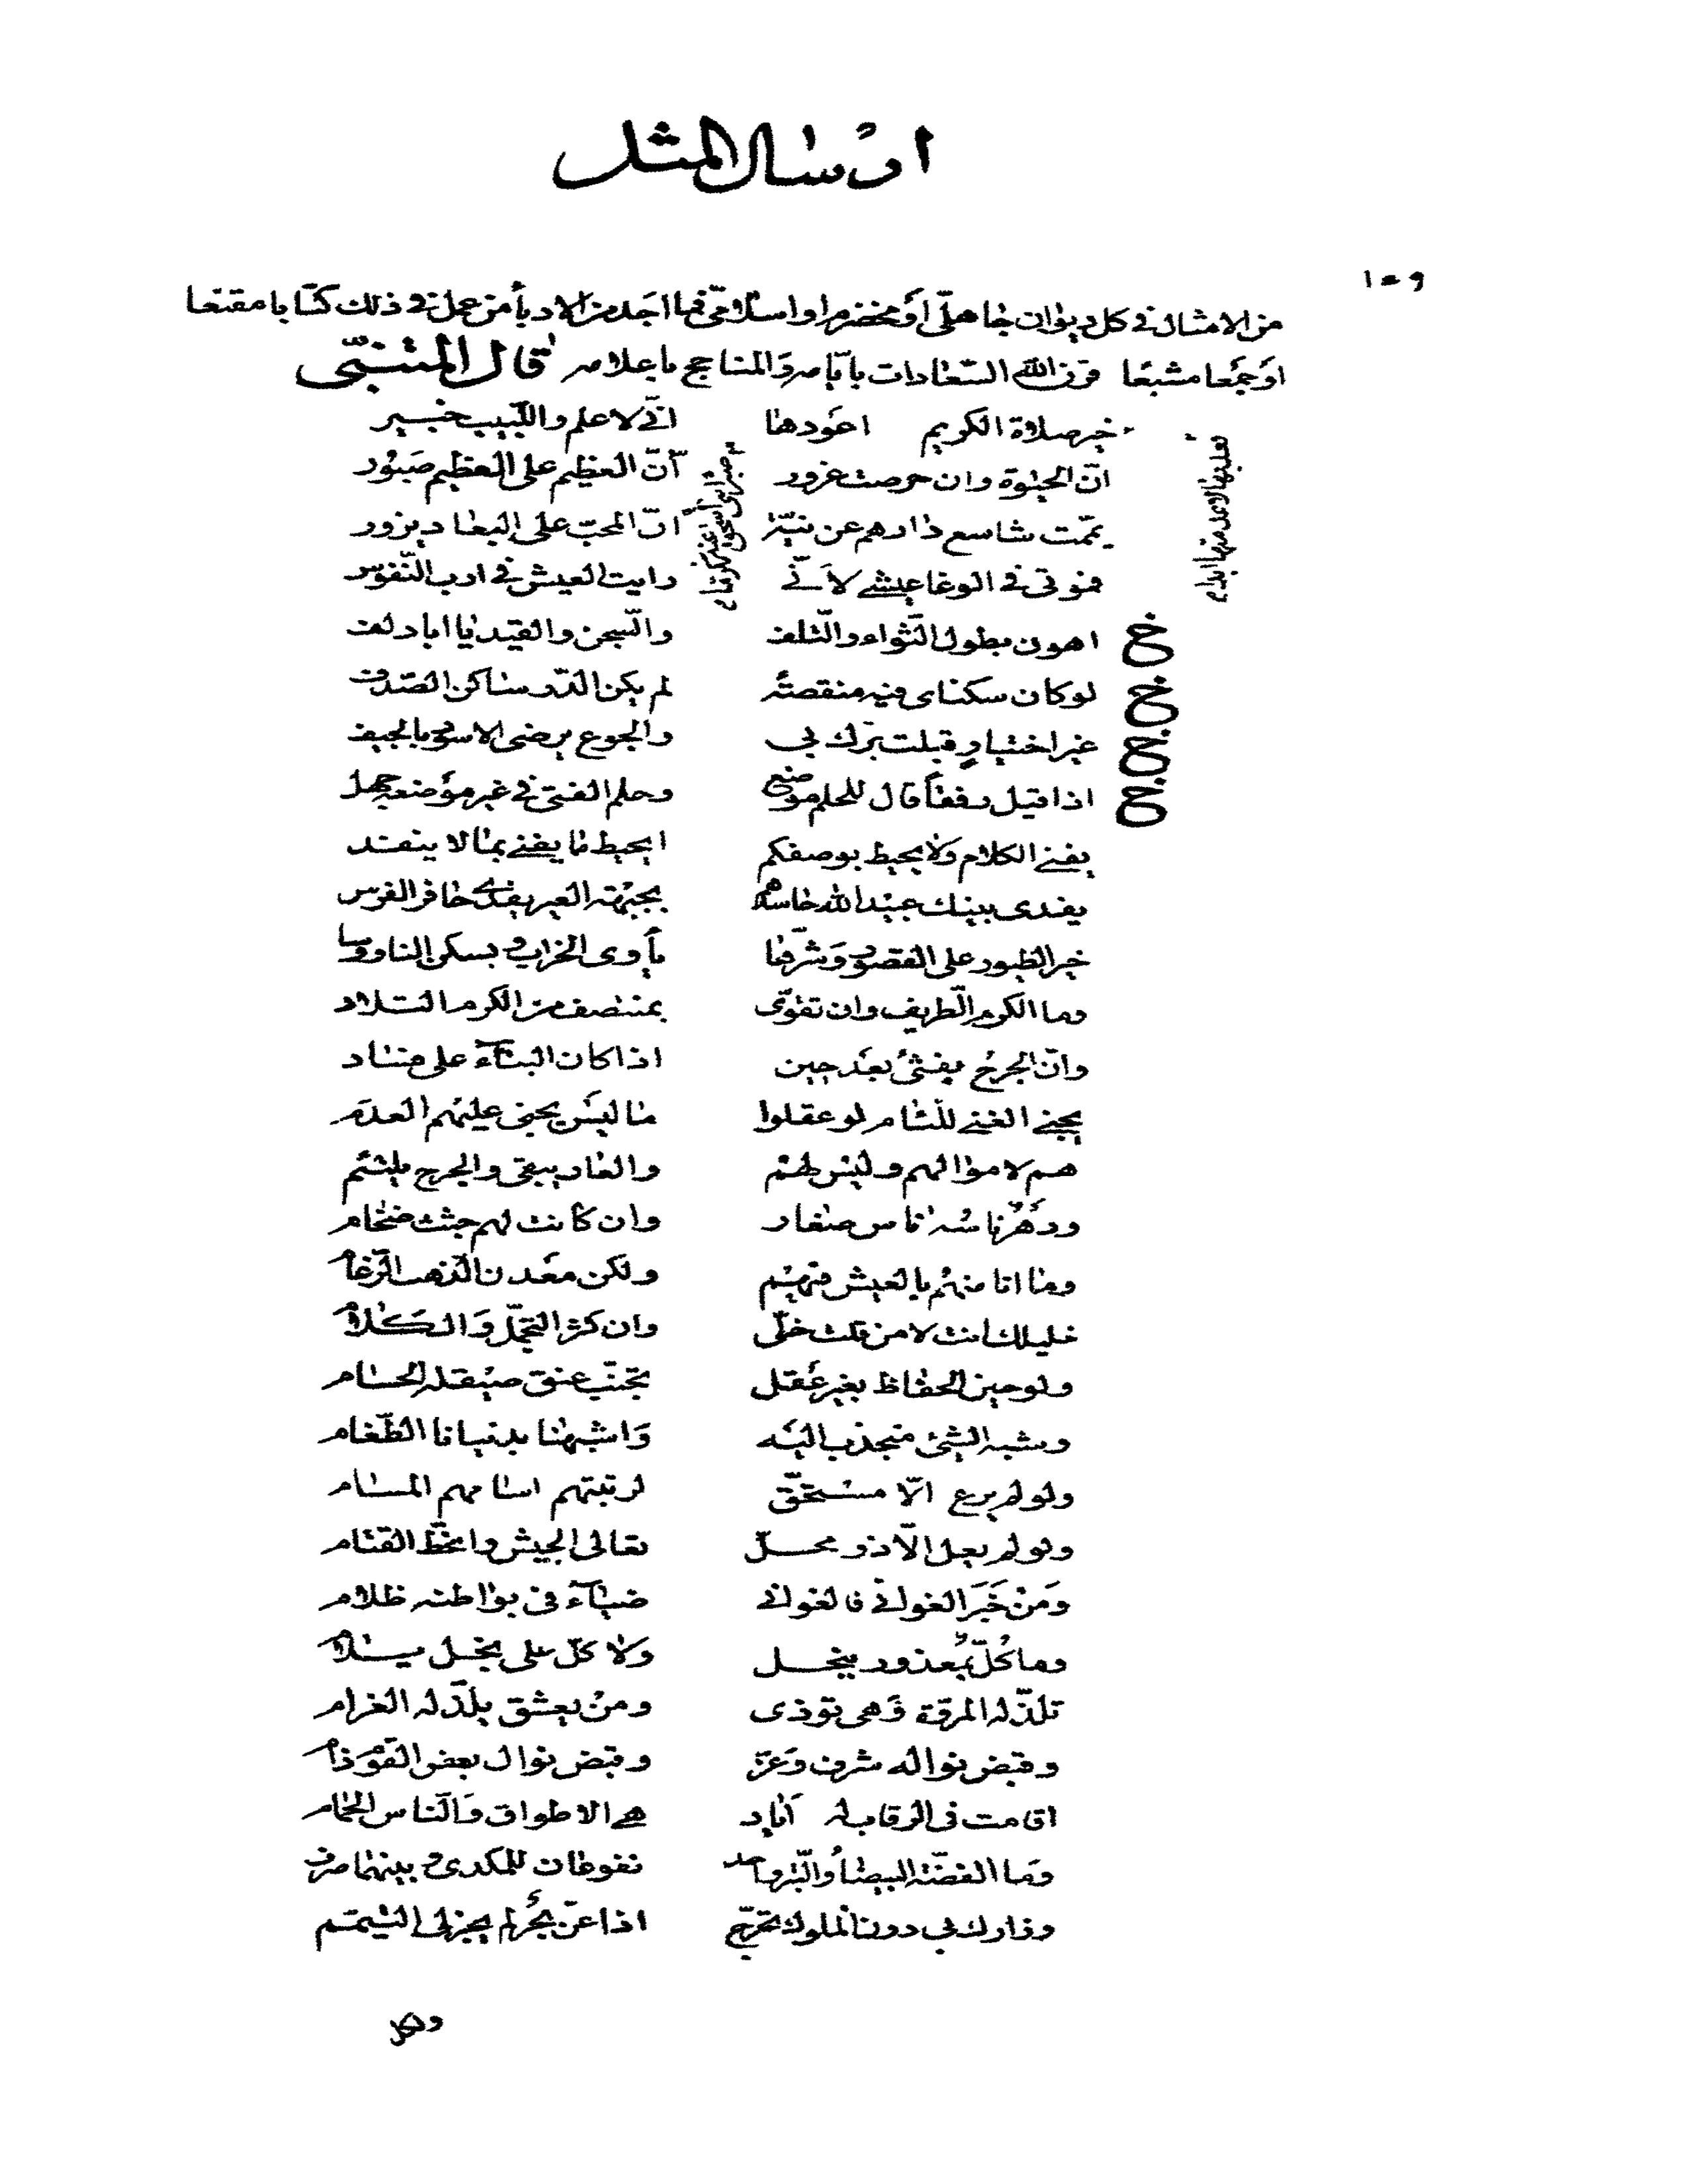 ارسال المثل
١٠٩
من الامثال فى كل ديوان جاهلىّ أو مخضرم او اسلامىّ فما اجد من الادبآ من عمل فى ذلك كتابا مقنعا
او جمعا مشبعا قرن الله السعادات بايّامه والمناجح باعلامه قال المتنبّى
خير صلاة الكريم اعودها انّى لاعلم واللّبيب خبير
انّ الحيٰوة وان حرصت غرور انّ العظيم على العظيم صبور
يمّمت شاسع دارهم عن نيّة انّ المحبّ على البعاد يزور
فموتى فى الوغا عيشى لانّى رايت العيش فى ارب النّفوس
خ اهون بطول الثّواء والتّلف والسّجن والقيد يا ابا دلف
خ لو كان سكناى فيه منقصة لم يكن الدّر ساكن الصّدف
خ غير اختيارٍ قبلت برّك بى والجوع يرضى الاسود بالجيف
خ اذا قيل رفقاً قال للحلم موضع وحلم الفتى فى غير موضعه جهل
يفنى الكلام ولا يحيط بوصفكم ايحيط ما يفنى بما لا ينفد
يفدى بنيك عبيد الله حاسدهم بجبهة العير يفدى حافر الفرس
خير الطيور على القصور وشرّها يأوى الخراب ويسكن الناووسا
وما الكرم الطّريف وان تقوّى بمنتصف من الكرم التلاد
وانّ الجرح ينفث بعد حين اذا كان البنآء على فساد
يجنى الغنى للّئام لو عقلوا ما ليس يجنى عليهم العدم
هم لاموالهم وليس لهم والعار يبقى والجرح يلتئم
ودهر ناسُه ناس صغار وان كانت لهم جثث ضخام
وما انا منهم بالعيش فيهم ولكن معدن الذّهب الرّغام
خليلك انت لا من قلت خلّى وان كثر التجمّل والكلام
ولو حيز الحفاظ بغير عقل تجنّب عنق صيقله الحسام
وشبه الشئ منجذب اليه واشبهنا بدنيانا الطّغام
ولو لم يرع الّا مستحقّ لرتبتهم اسامهم المسام
ولو لم يعل الّا ذو محلّ تعالى الجيش وانحطّ القتام
ومن خبر الغوانى فالغوانى ضيآء فى بواطنه ظلام
وما كلّ بمعذور ببخل ولا كلّ على بخل يلام
تلذّ له المروّة وهى توذى ومن يعشق يلذّ له الغرام
وقبض نواله شرف وعزّ وقبض نوال بعض القوم ذام
اقامت فى الرقاب له اياد هى الاطواق والنّاس الحمام
وما الفضّة البيضاُ والتّبر واحد نفوعان للمكدى وبينهما صرف
وزارك بى دون الملوك تحرّج اذا عنّ بحر لم يجز لى التيمّم